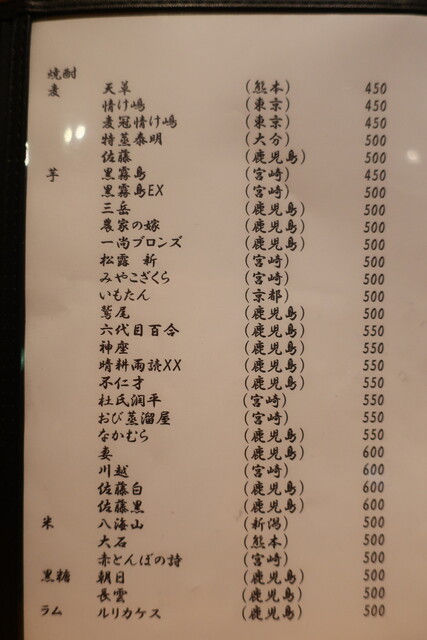 焼酎
麦 天草 (熊本) 450
情け嶋 (東京) 450
麦冠情け嶋 (東京) 450
特蒸泰明 (大分) 500
佐藤 (鹿児島) 500
芋 黒霧島 (宮崎) 450
黒霧島EX (宮崎) 500
三岳 (鹿児島) 500
農家の嫁 (鹿児島) 500
一尚ブロンズ (鹿児島) 500
松露 新 (宮崎) 500
みやこざくら (宮崎) 500
いもたん (京都) 500
鷲尾 (鹿児島) 500
六代目百合 (鹿児島) 550
神座 (鹿児島) 550
晴耕雨読XX (鹿児島) 550
不仁才 (鹿児島) 550
杜氏潤平 (宮崎) 550
おび蒸溜屋 (宮崎) 550
なかむら (鹿児島) 550
妻 (鹿児島) 600
川越 (宮崎) 600
佐藤白 (鹿児島) 600
佐藤黒 (鹿児島) 600
米 八海山 (新潟) 500
大石 (熊本) 500
赤とんぼの詩 (宮崎) 500
黒糖 朝日 (鹿児島) 500
長雲 (鹿児島) 500
ラム ルリカケス (鹿児島) 500